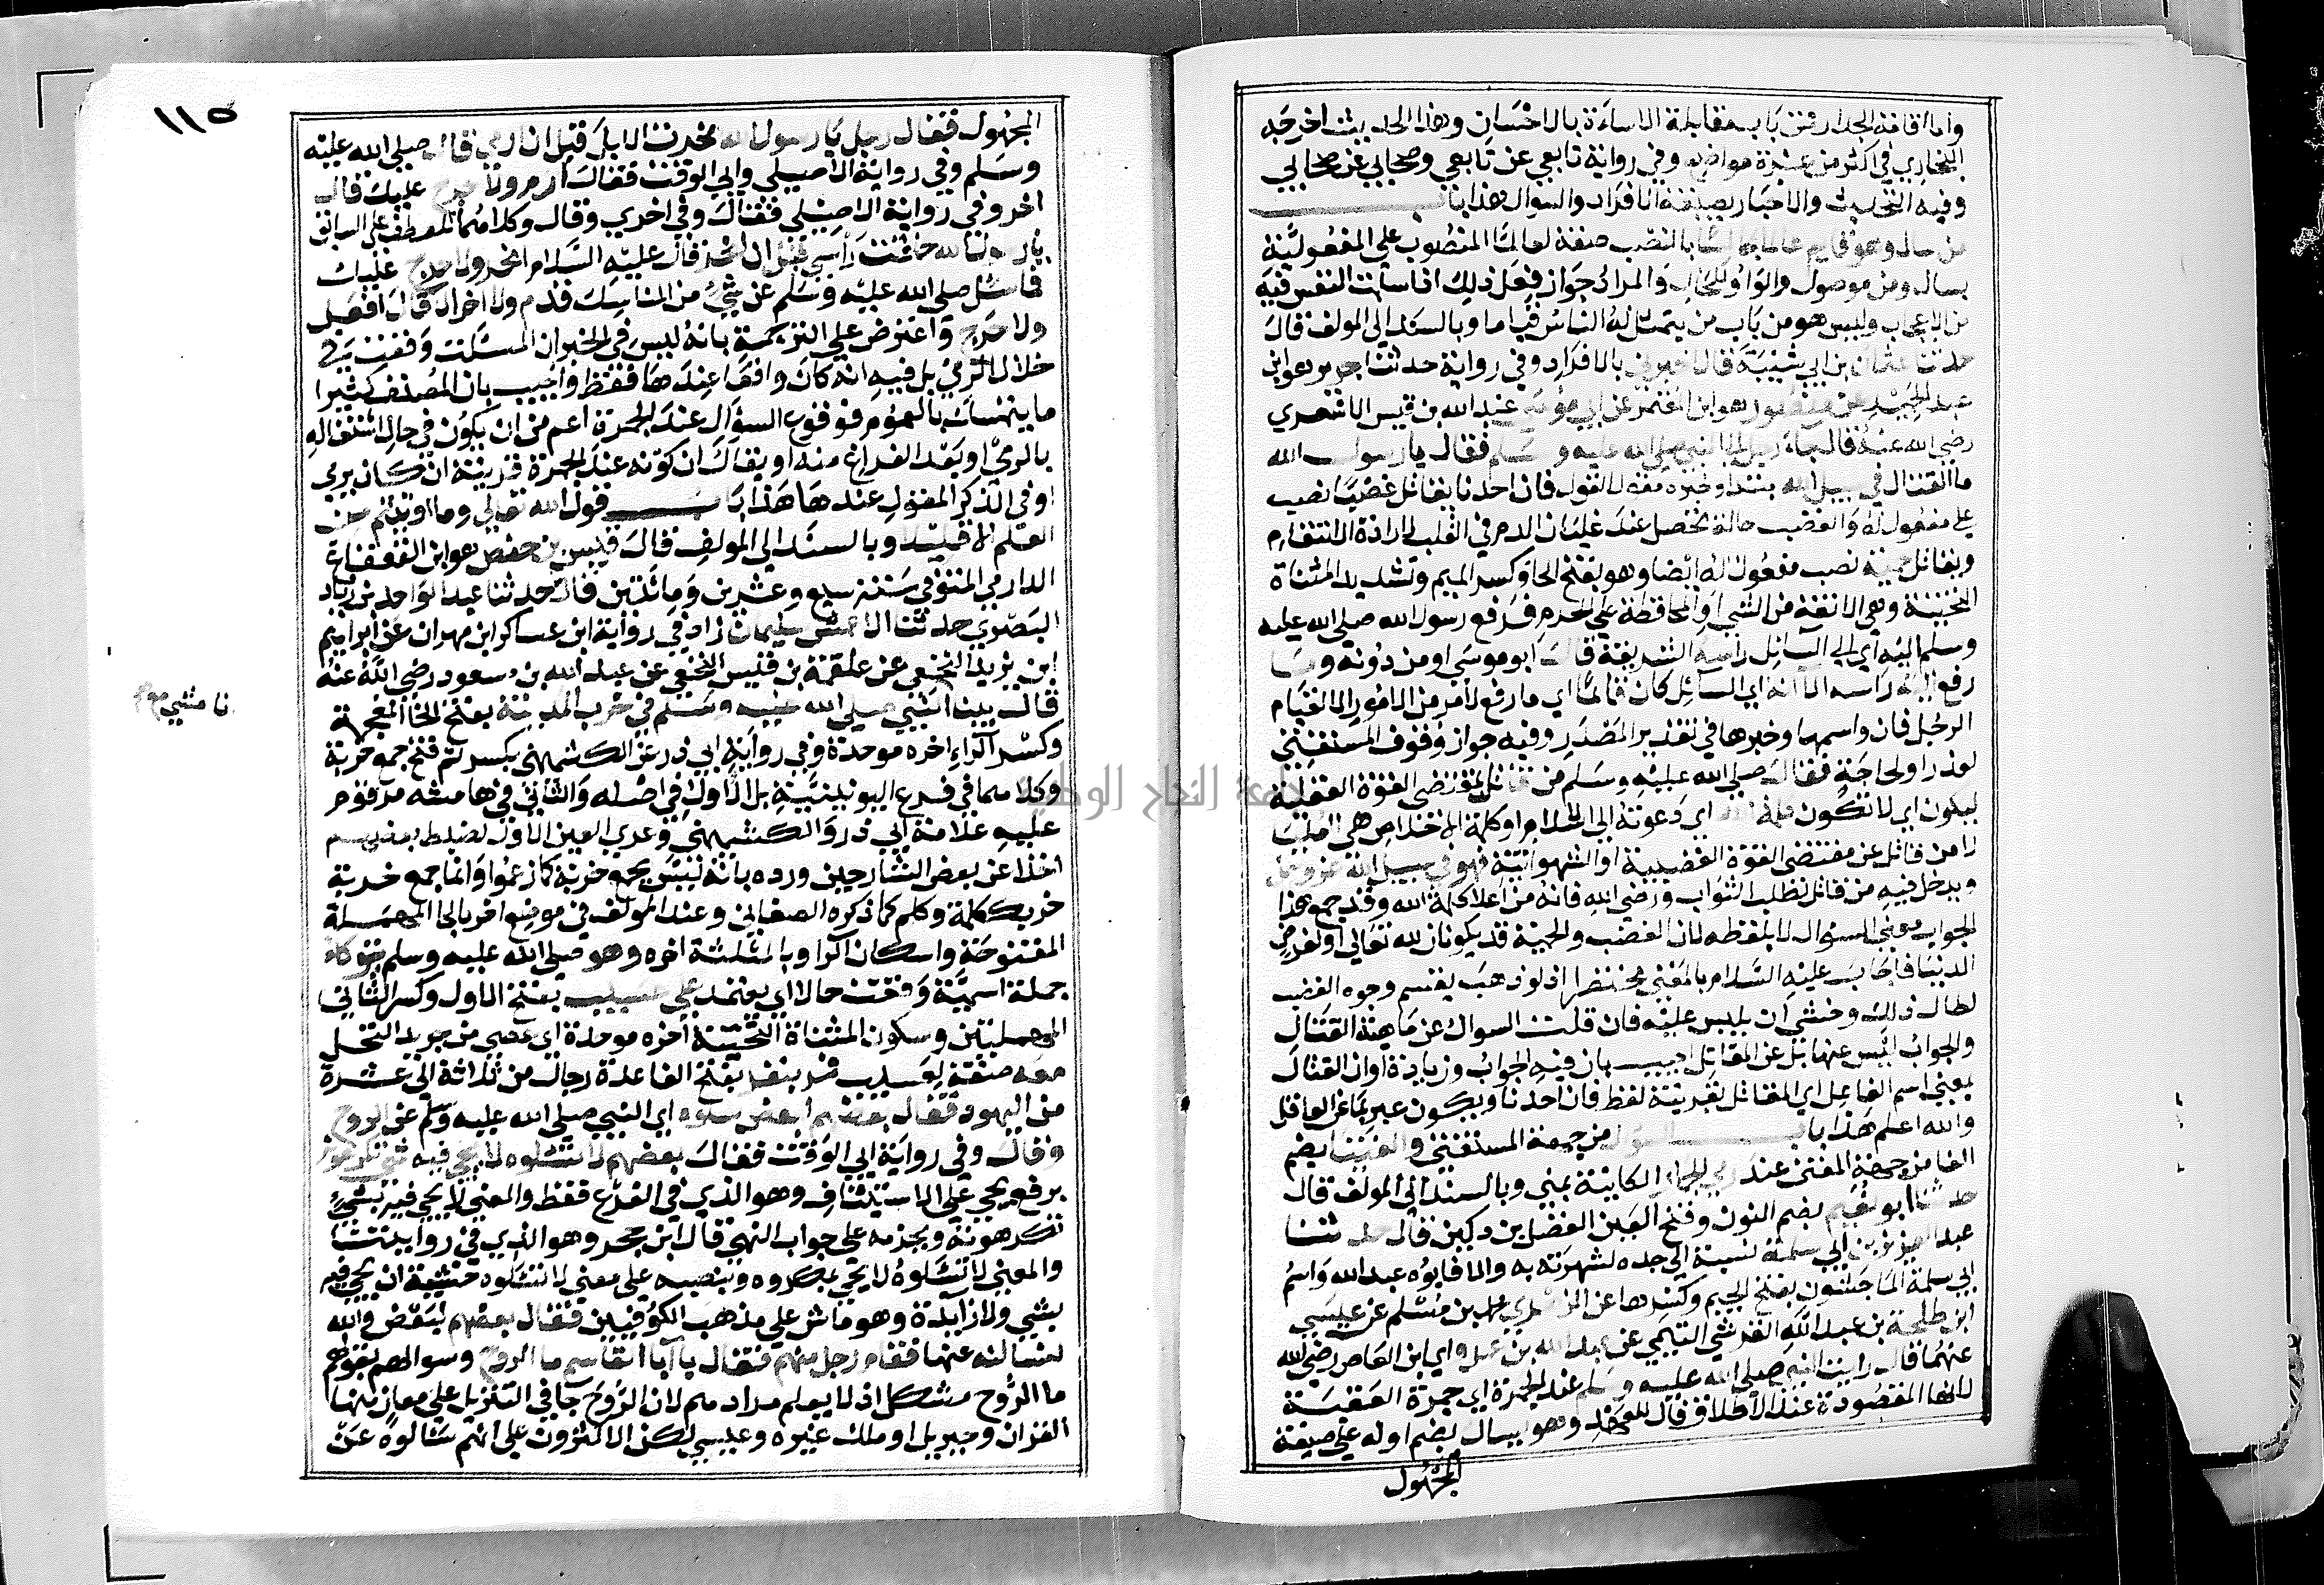 واما اقامة الجدار فمن باب مقابلة الاساءة بالاحسان وهذا الحديث اخرجه
البخاري في اكثر من عشرة مواضع وفي رواية تابعي عن تابعي وصحابي عن صحابي
وفيه التحديث والاخبار بصيغة الافراد والسوال هذا باب
من سال وهو قايم عالما جالسا بالنصب صفة لعالما المنصوب علي المفعولية
بسال ومن موصول والواو للحال والمراد جواز فعل ذلك اذا سلمت النفس فيه
من الاعجاب وليس هو من باب من يتمثل له الناس قياما وبالسند الي المولف قال
حدثنا عثمان بن ابي شيبة قال اخبرني بالافراد وفي رواية حدثنا جرير هو ابن
عبد الحميد عن منصور هو ابن المعتمر عن ابي موسي عبد الله بن قيس الاشعري
رضي الله عنه قال جاء رجل الي النبي صلي الله عليه وسلم فقال يا رسول الله
ما القتال في سبيل الله مبتدا وخبره مقول القول فان احدنا يقاتل غضبا نصب
علي مفعول له والغضب حالة تحصل عند غليان الدم في القلب لارادة الانتقام
ويقاتل حمية نصب مفعول له ايضا وهو بفتح الحا وكسر الميم وتشديد المثناة
التحتية وهي الانفة من الشي والمحافظة علي الحرم فرفع رسول الله صلي الله عليه
وسلم اليه اي الي السائل راسه الشريفة قال ابو موسي او من دونه وما
رفع اليه راسه الا انه اي السائل كان قائما اي ما رفع لامر من الامور الا لقيام
الرجل فان واسمها وخبرها في تقدير المصدر وفيه جواز وقوف المستفتي
لعذر او لحاجة فقال صلي الله عليه وسلم من قاتل بمقتضي القوة العقلية
ليكون اي لان تكون كلمة الله اي دعوته الي الاسلام او كلمة الاخلاص هي العليا
لا من قاتل عن مقتضي القوة الغضبية او الشهوانية فهو في سبيل الله عز وجل
ويدخل فيه من قاتل لطلب الثواب ورضي الله فانه من اعلا كلمة الله وقد جمع هذا
الجواب معني السوال لا بلفظه لان الغضب والحمية قد يكونان لله تعالي او لغرض
الدنيا فاجاب عليه السلام بالمعني مختصرا اذ لو ذهب يقسم وجوه الغضب
لطال ذلك وخشي ان يلبس عليه فان قلت السوال عن ماهية القتال
والجواب ليس عنها بل عن المقاتل اجيب بان فيه الجواب وزيادة او ان القتال
بمعني اسم الفاعل اي المقاتل بقرينة لفظ فان احدنا ويكون عبر بما عن العاقل
والله اعلم هذا باب السوال من جهة المستفتي والفتيا بضم
الفا من جهة المفتي عند رمي الجمار الكاينة بمني وبالسند الي المولف قال
حدثنا ابو نعيم بضم النون وفتح العين الفضل بن دكين قال حدثنا
عبد العزيز بن ابي سلمة نسبة الي جده لشهرته به والا فابوه عبد الله واسم
ابي سلمة الماجشون بفتح الجيم وكسرها عن الزهري محمد بن مسلم عن عيسي
ابن طلحة بن عبد الله القرشي التيمي عن عبد الله بن عمرو اي ابن العاص رضي الله
عنهما قال رايت النبي صلي الله عليه وسلم عند الجمرة اي جمرة العقبة
لانها المقصودة عند الاطلاق فال للعهد وهو يسال بضم اوله علي صيغة
المجهول
١١٥
المجهول فقال رجل يا رسول الله نحرت الابل قبل ان ارمي قال صلي الله عليه
وسلم وفي رواية الاصيلي وابي الوقت فقال ارم ولا حرج عليك قال
اخر وفي رواية الاصيلي فقال وفي اخري وقال وكلاهما للعطف علي السابق
يا رسول الله حلقت راسي قبل ان انحر قال عليه السلام انحر ولا حرج عليك
فما سئل صلي الله عليه وسلم عن شيء من المناسك قدم ولا اخر الا قال افعل
ولا حرج واعترض علي الترجمة بانه ليس في الخبر ان المسئلة وقعت في
خلال الرمي بل فيه انه كان واقفا عندها فقط واجيب بان المصنف كثيرا
ما يتمسك بالعموم فوقوع السؤال عند الجمرة اعم من ان يكون في حال اشتغاله
بالرمي او بعد الفراغ منه او يقال ان كونه عند الجمرة قرينة انه كان يرمي
او في الذكر المقول عندها هذا باب قول الله تعالي وما اوتيتم من
العلم الا قليلا وبالسند الي المولف قال قيس بن حفص هو ابن القعقاع
الدارمي المتوفي سنة سبع وعشرين ومائتين قال حدثنا عبد الواحد بن زياد
البصري حدثنا الاعمش سليمان زاد في رواية ابن عساكر ابن مهران عن ابراهيم
ابن يزيد النخعي عن علقمة بن قيس النخعي عن عبد الله بن مسعود رضي الله عنه
قال بينا النبي صلي الله عليه وسلم في خرب المدينة بفتح الخا المعجمة
وكسر الراء اخره موحدة وفي رواية ابي ذر عن الكشمهني بكسر ثم فتح جمع خربة
وكلاهما في فرع اليونينية بل الاول في اصله والثاني في هامشه مرقوم
عليه علامة ابي ذر والكشمهني وعدي العين الاول لضبط بعضهم
اخذا عن بعض الشارحين ورده بانه ليس بجمع خربة كما زعموا وانما جمع خربة
خرب ككلمة وكلم كما ذكره الصغاني وعند المولف في موضع اخر بالحا المهملة
المفتوحة واسكان الرا وبالمثلثة اخره وهو صلي الله عليه وسلم يتوكاء
جملة اسمية وقعت حالا اي يعتمد علي عسيب بفتح الاول وكسر الثاني
المهملتين وسكون المثناة التحتية اخره موحدة اي عصي من جريد النخل
معه صفة لعسيب فمر بنفر بفتح الفا عدة رجال من ثلاثة الي عشرة
من اليهود فقال بعضهم لبعض سلوه اي النبي صلي الله عليه وسلم عن الروح
وقال وفي رواية ابي الوقت فقال بعضهم لا تسئلوه لا يجي فيه بشي تكرهونه
برفع يجي علي الاستيناف وهو الذي في الفرع فقط والمعني لا يجي فيه بشيء
تكرهونه وبجزمه علي جواب النهي قال ابن حجر وهو الذي في روايتنا
والمعني لا تسئلوه لا يجي بمكروه وبنصبه علي معني لا تسئلوه خشية ان يجي فيه
بشي ولا زايدة وهو ماش علي مذهب الكوفيين فقال بعضهم لبعض والله
لنسالنه عنها فقام رجل منهم فقال يا ابا القاسم ما الروح وسوالهم بقولهم
ما الروح مشكل اذ لا يعلم مرادهم لان الروح جا في التنزيل علي معان منها
القران وجبريل او ملك غيره وعيسي لكن الاكثرون علي انهم سالوه عن
جامعة النجاح الوطنية